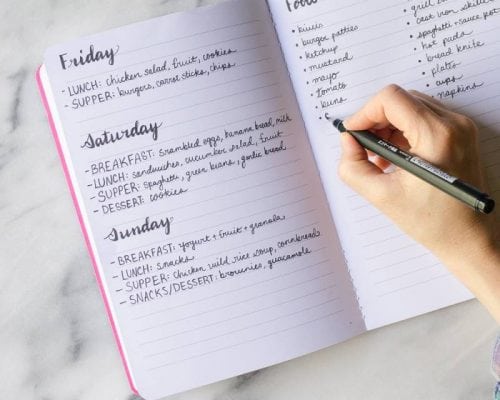 Friday
- LUNCH: chicken salad, fruit, cookies
- SUPPER: burgers, carrot sticks, chips
Saturday
- BREAKFAST: srambled eggs, banana bread, milk
- LUNCH: sandwiches, cucumber salad, fruit
- SUPPER: spaghetti, green beans, garlic bread
- DESSERT: cookies
Sunday
- BREAKFAST: yogurt + fruit + granola
- LUNCH: snacks
- SUPPER: chicken wild rice soup, cornbread
- SNACKS/DESSERT: brownies, guacamole
• burger patties
• ketchup
• mustard
• mayo
• tomato
• buns
• cast iron skillet
• spaghetti + sauce pot
• hot pads
• bread knife
• plates
• cups
• napkins